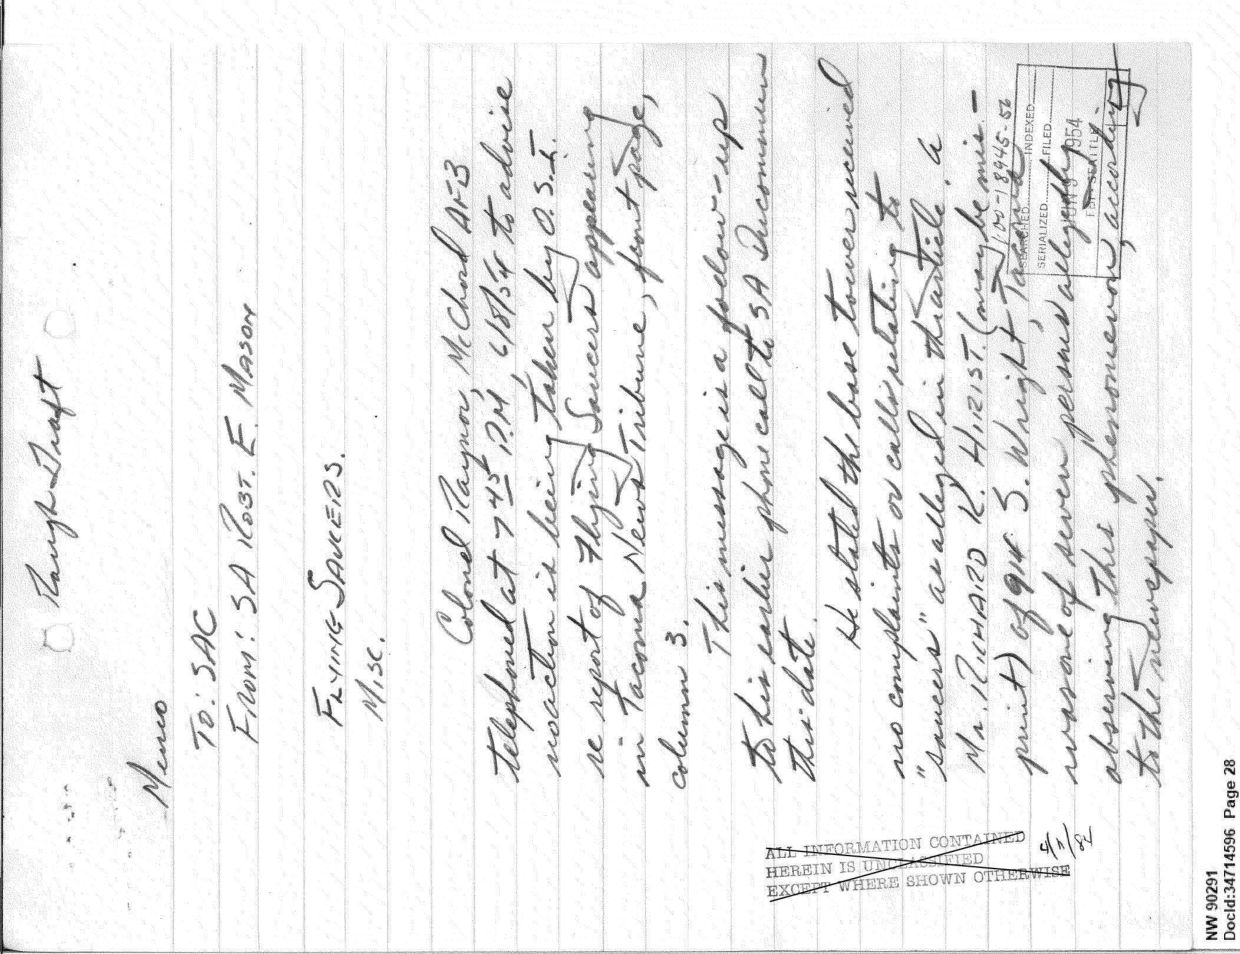 Rough Draft
Memo
To: SAC
From: SA Robt. E. Mason
FLYING SAUCERS.
MISC.
Colonel Raynor, McChord AFB
telephoned at 7 45 P.M., 6/8/54 to advise
no action is being taken by O.S.I.
re report of Flying Saucers appearing
in Tacoma News Tribune, front page,
column 3.
This message is a follow-up
to his earlier phone call to SA
this date.
He stated the base tower received
no complaints or calls relating to
"saucers" as alleged in the article. A
Mr. RICHARD R. HIRIST. (may be mis-
print) of 914 S. Wright, Tacoma
was one of seven persons allegedly
observing this phenomenon, according
to the newspaper.
100-18945-56
SEARCHED INDEXED
SERIALIZED FILED
JUN 9 1954
FBI - SEATTLE
ALL INFORMATION CONTAINED
HEREIN IS UNCLASSIFIED
EXCEPT WHERE SHOWN OTHERWISE
NW 90291
DocId:34714596 Page 28